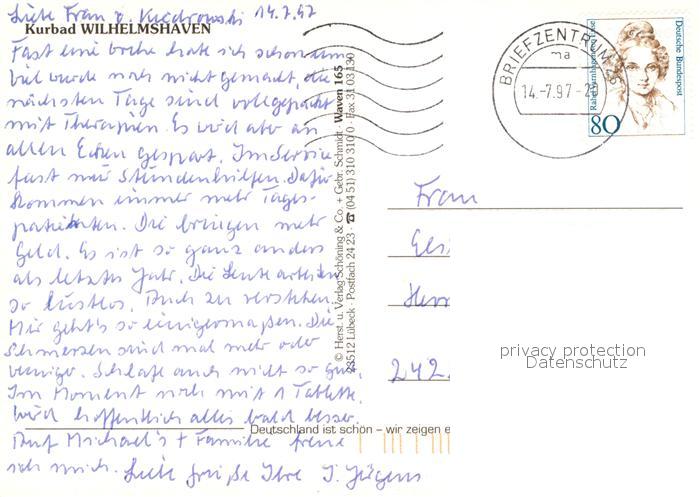 Liebe Frau v. Kiedrowski 14.7.97
Kurbad WILHELMSHAVEN
Fast eine Woche habe ich schon um
viel wurde noch nicht gemacht, die
nächsten Tage sind vollgepackt
mit Therapien. Es wird aber an
allen Ecken gespart. Im Service
fast nur Stundenhilfen. Dafür
kommen immer mehr Tages-
patienten. Die bringen mehr
Geld. Es ist so ganz anders
als letztes Jahr. Die Leute arbeiten
so lustlos. Auch zu verstehen
Mir geht's so einigermaßen. Die
Schmerzen sind mal mehr oder
weniger. Schlafe auch nicht so gut.
Im Moment noch mit 1 Tablette.
Wird hoffentlich alles bald besser.
Auf Michael's + Familie freue
ich mich. Liebe Grüße Ihre I. Jürgens
Deutschland ist schön – wir zeigen e
© Herst. u. Verlag Schöning & Co. + Gebr. Schmidt · Waven 165
23512 Lübeck · Postfach 24 23 · ☎ (04 51) 310 310 · Fax 31 03 130
BRIEFZENTRUM 26
ma
14.-7.97-2
Deutsche Bundespost
80
Frau
Herrn
242
privacy protection
Datenschutz